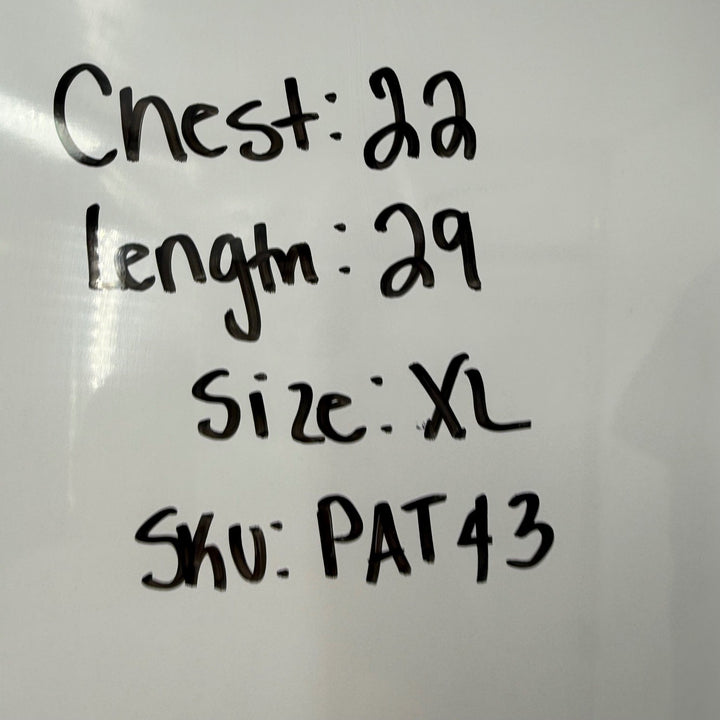 Chest: 22
Length: 29
Size: XL
SKU: PAT43